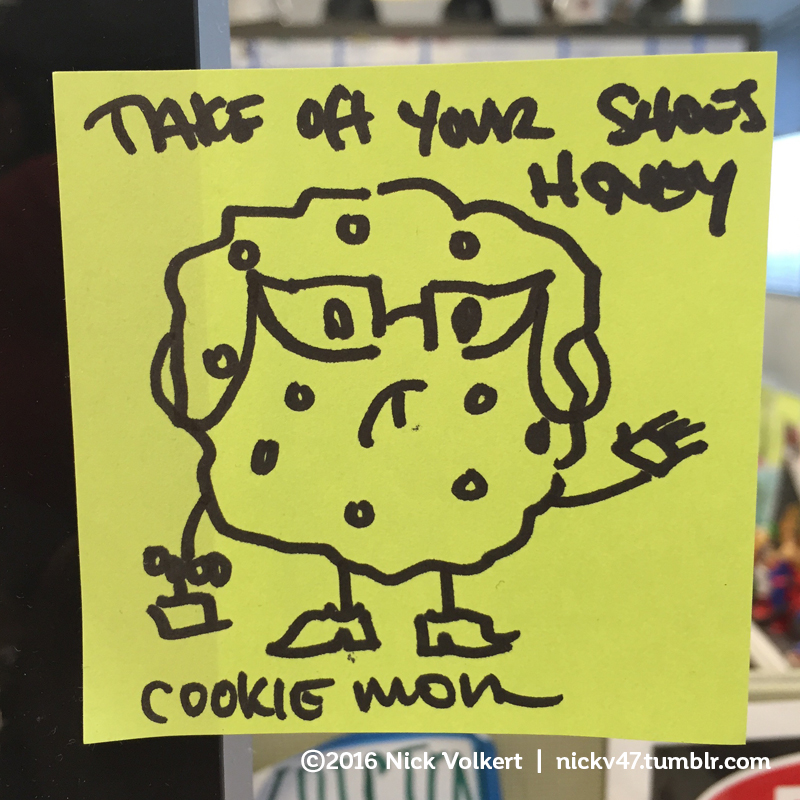 TAKE OFF YOUR SHOES
HONEY
COOKIE MOM
©2016 Nick Volkert | nickv47.tumblr.com